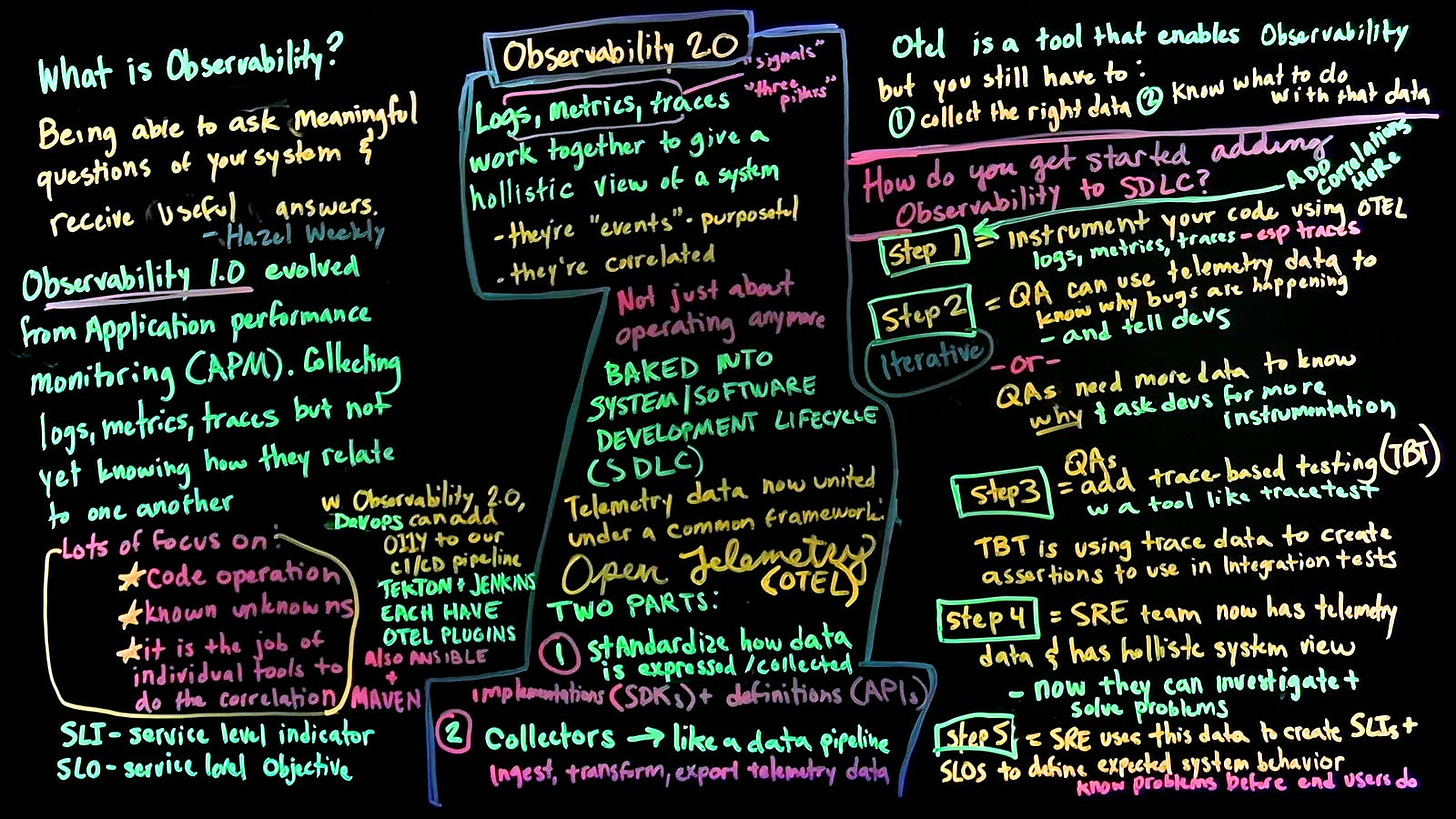 What is Observability?
Being able to ask meaningful
questions of your system &
receive useful answers.
- Hazel Weekly
Observability 1.0 evolved
from Application performance
monitoring (APM). Collecting
logs, metrics, traces but not
yet knowing how they relate
to one another
Lots of focus on:
code operation
known unknowns
it is the job of
individual tools to
do the correlation
SLI - service level indicator
SLO - service level Objective
w Observability 2.0,
Devops can add
O11Y to our
CI/CD pipeline
TEKTON + JENKINS
EACH HAVE
OTEL PLUGINS
Also ANSIBLE
+
MAVEN
Observability 2.0
"signals"
"three
pillars"
Logs, metrics, traces
work together to give a
hollistic view of a system
- they're "events" - purposeful
- they're correlated
Not just about
operating anymore
BAKED INTO
SYSTEM/SOFTWARE
DEVELOPMENT LIFECYCLE
(SDLC)
Telemetry data now united
under a common framework:
Open Telemetry
(OTEL)
TWO PARTS:
1 stAndardize how data
is expressed/collected
implementations (SDKs) + definitions (APIs)
2 Collectors → like a data pipeline
Ingest, transform, export telemetry data
Otel is a tool that enables Observability
but you still have to:
1 collect the right data 2 Know what to do
with that data
How do you get started adding
Observability to SDLC?
ADD
correlations
HERE
Step 1 = Instrument your code using OTEL
logs, metrics, traces - esp traces
Step 2 = QA can use telemetry data to
know why bugs are happening
- and tell devs
Iterative
- or -
QAs need more data to know
why & ask devs for more
instrumentation
Step 3 = QAs
add trace-based testing (TBT)
w a tool like tracetest
TBT is using trace data to create
assertions to use in Integration tests
Step 4 = SRE team now has telemetry
data & has hollistic system view
- now they can investigate +
solve problems
Step 5 = SRE uses this data to create SLIs +
SLOS to define expected system behavior
know problems before end users do